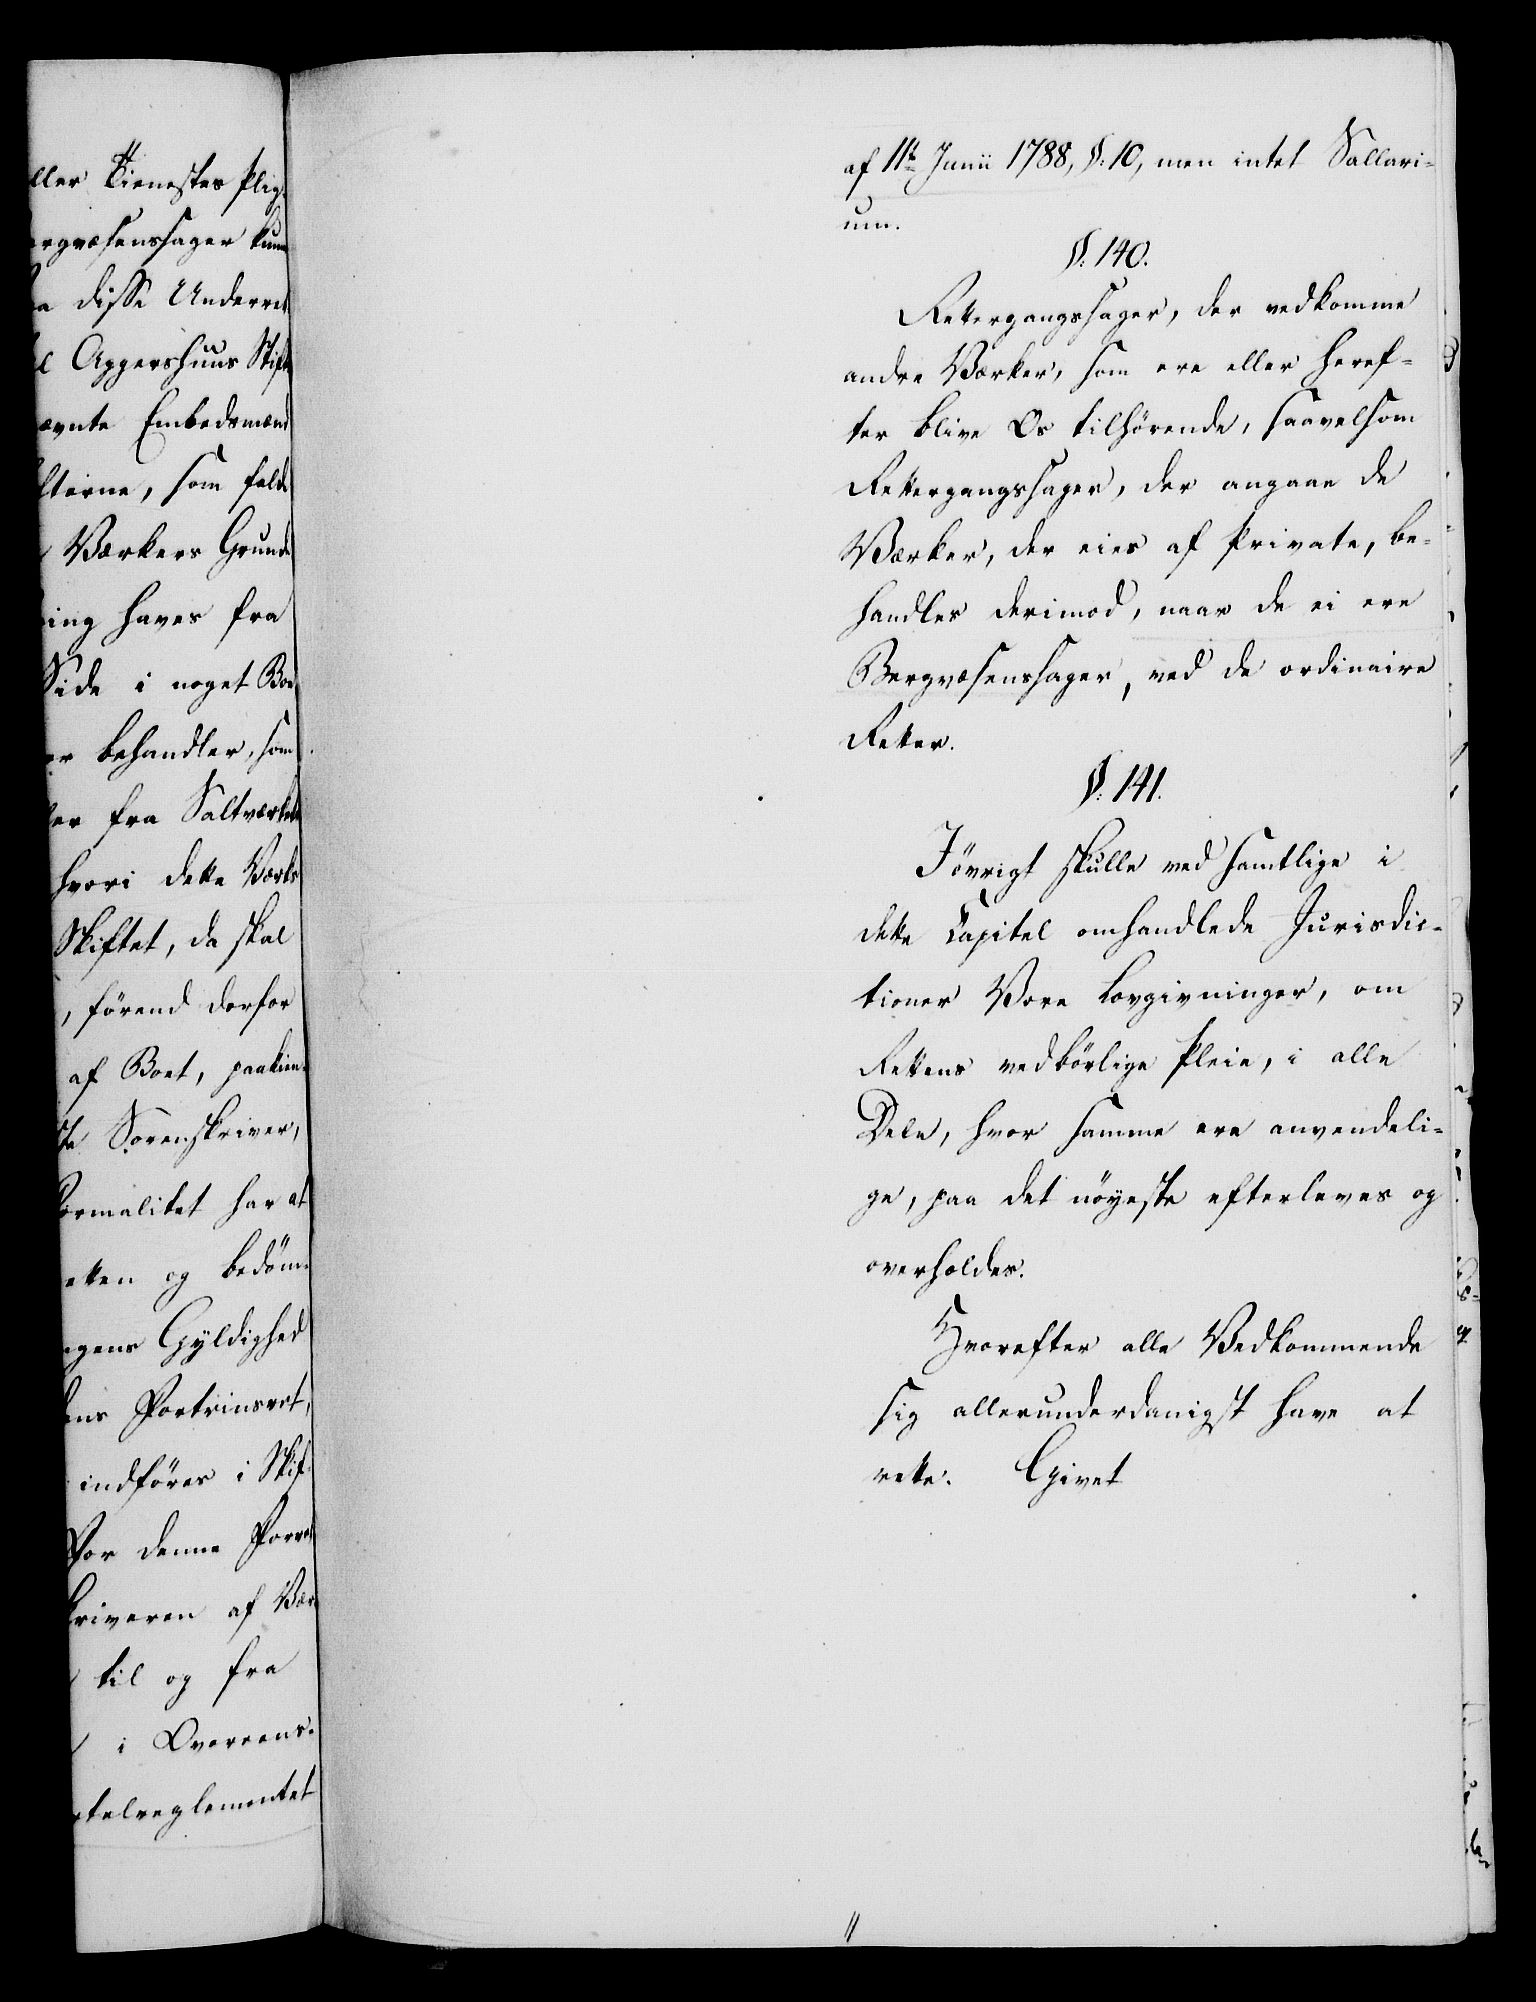 ller Tienestes Plig
ergvæsenssager kun
a disse Underret
l Aggershuus Stift
ævnte Embedsmænd
fterne, som fald
Værkers Grund
ing haves fra
Side i noget Bo
er behandler, som
er fra Saltværket
hvori dette Værks
Skiftet, da skal
, förend derfor
af Boet, paakien-
te Sorenskriver,
Formalitet har at
etten og bedöm-
agens Gyldighed
ens Fortrinsret,
indföres i Skif-
For denne Forret
kriveren af Vær
til og fra
i Overeens-
rtelreglementet
af 11te Junii 1788, §. 10, men intet Sallari-
um.
§. 140.
Rettergangssager, der vedkomme
andre Værker, som ere eller heref-
ter blive Os tilhörende, saavelsom
Rettergangssager, der angaae de
Værker, der eies af Private, be-
handles derimod, naar de ei ere
Bergvæsenssager, ved de ordinaire
Retter.
§. 141.
Iövrigt skulle ved samtlige i
dette Capitel omhandlede Jurisdic-
tioner Vore Lovgivninger, om
Rettens vedbörlige Pleie, i alle
Dele, hvor samme ere anvendeli-
ge, paa det nöyeste efterleves og
overholdes.
Hvorefter alle Vedkommende
sig allerunderdanigst have at
rette. Givet